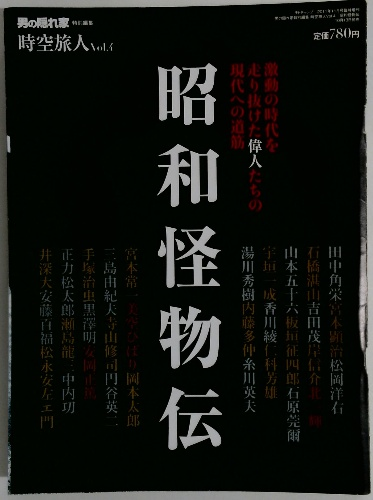 男の隠れ家 特別編集
時空旅人 Vol.4
定価780円
激動の時代を
走り抜けた偉人たちの
現代への道筋
昭和怪物伝
田中角栄 宮本顕治 松岡洋右
石橋湛山 吉田茂 尾信介 北一輝
山本五十六 板垣征四郎 石原莞爾
宇垣一成 香川綾 仁科芳雄
湯川秀樹 内藤多仲 糸川英夫
宮本常一 美空ひばり 岡本太郎
三島由紀夫 寺山修司 円谷英二
手塚治虫 黒澤明 安岡正篤
正力松太郎 瀬島龍三 中内㓛
井深大 安藤百福 松永安左エ門